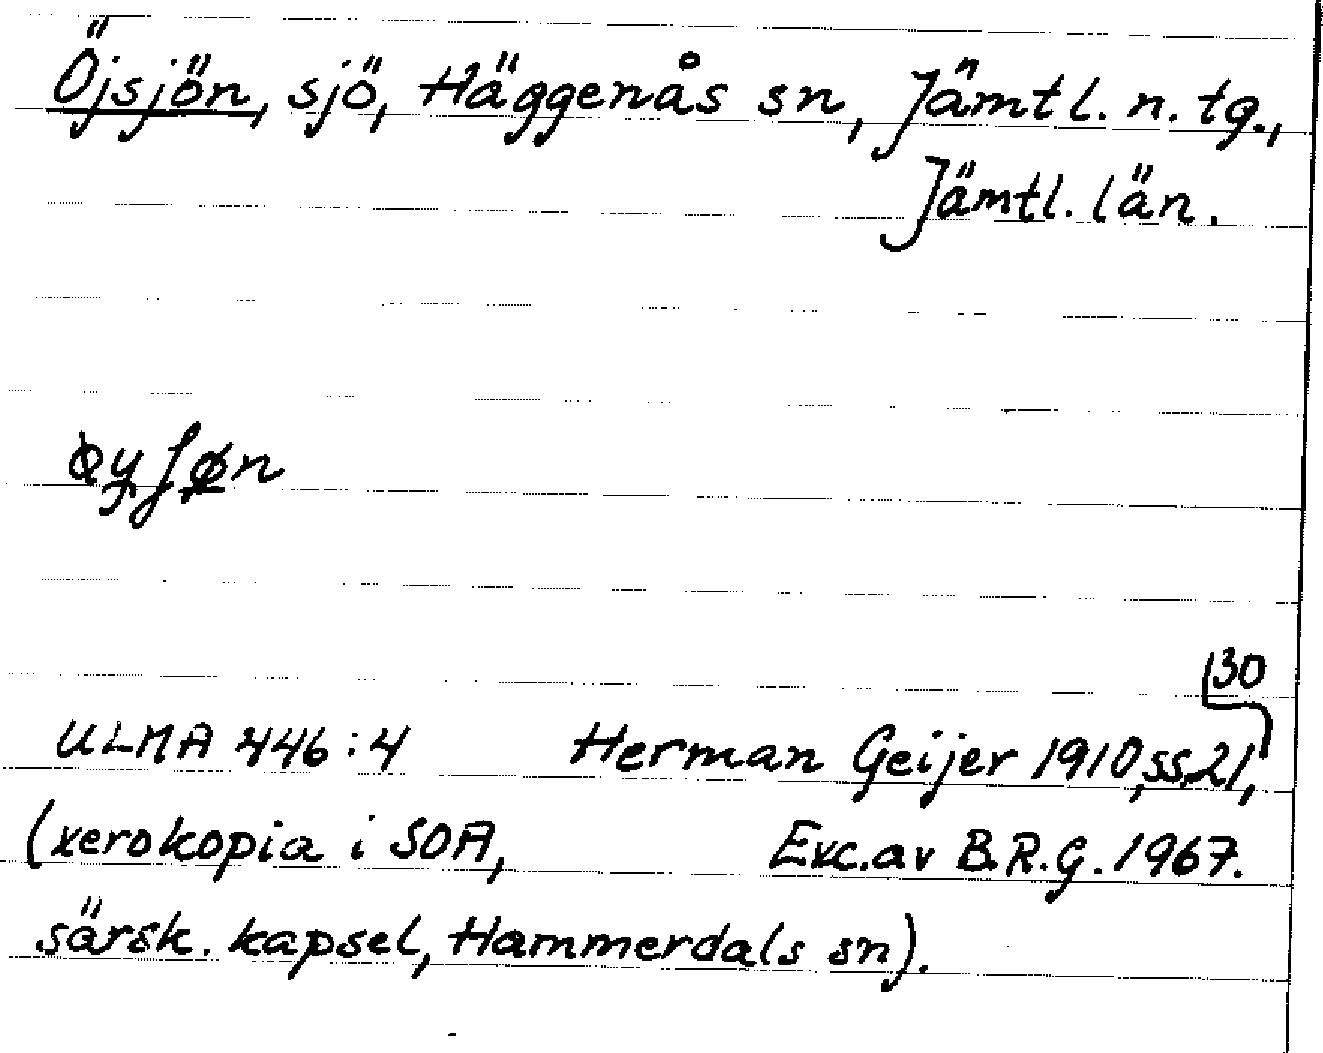 Öjsjön, sjö, Häggenås sn, Jämtl. n. tg.,
Jämtl. län.
130
ULMA 446:4 Herman Geijer 1910, ss. 21,
(xerokopia i SOA, Exc. av B.R.G. 1967.
särsk. kapsel, Hammerdals sn).